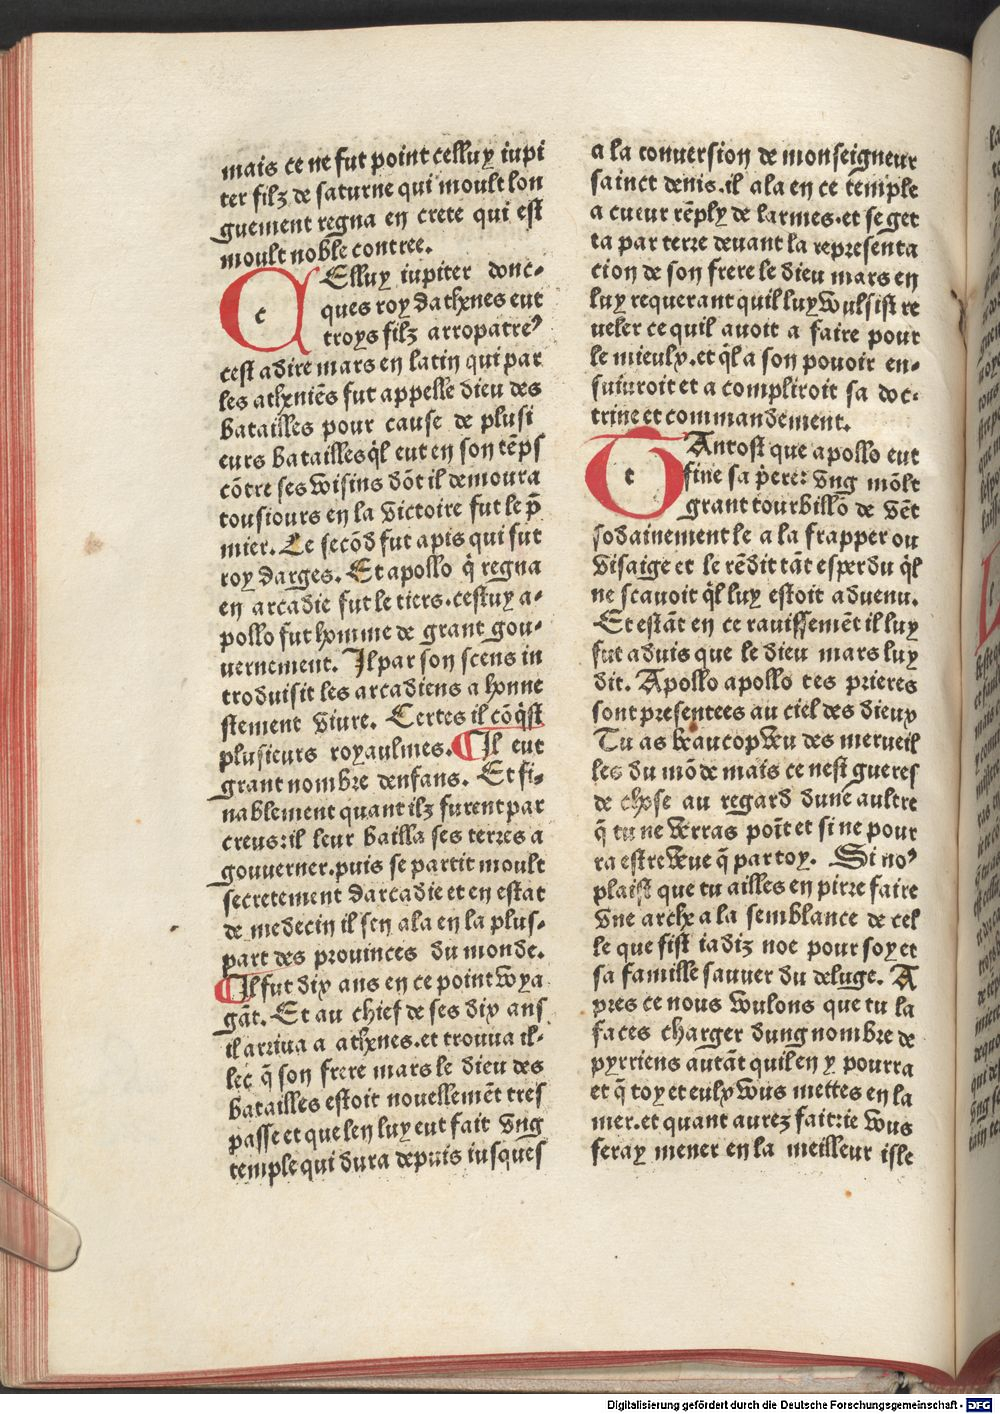 mais ce ne fut point celluy iupi
ter filz de saturne qui moult lon
guement regna en crete qui est
moult noble contree.
CElluy iupiter donc-
ques roy dathenes eut
troys filz arropatre⁹
cest adire mars en latin qui par
les atheniēs fut appelle dieu des
batailles pour cause de plusi
eurs batailles ql̄ eut en son tēps
cōtre ses voisins dōt il demoura
tousiours en la victoire fut le p̄
mier. Le secōd fut apis qui fut
roy darges. Et apollo q̄ regna
en arcadie fut le tiers. cestuy a-
pollo fut homme de grant gou-
uernement. Il par son scens in
troduisit les arcadiens a honne
stement viure. Certes il cōq̄st
plusieurs royaulmes. ¶Il eut
grant nombre denfans. Et fi-
nablement quant ilz furent par
creus: il leur bailla ses terres a
gouuerner. puis se partit moult
secretement darcadie et en estat
de medecin il sen ala en la plus-
part des prouinces du monde.
¶Il fut dix ans en ce point voya
gāt. Et au chief de ses dix ans
il arriua a athenes. et trouua il-
lec q̄ son frere mars le dieu des
batailles estoit nouellemēt tres
passe et que len luy eut fait vng
temple qui dura depuis iusques
a la conuersion de monseigneur
sainct denis. il ala en ce temple
a cueur rēply de larmes. et se get
ta par terre deuant la representa
cion de son frere le dieu mars en
luy requerant quil luy voulsist re
ueler ce quil auoit a faire pour
le mieulx. et ql̄ a son pouoir en-
suiuroit et a compliroit sa doc-
trine et commandement.
TAntost que apollo eut
fine sa p̄iere: vng mōlt
grant tourbillō de vēt
sodainement le a la frapper ou
visaige et le rēdit tāt esperdu ql̄
ne scauoit ql̄ luy estoit aduenu.
Et estāt en ce rauissemēt il luy
fut aduis que le dieu mars luy
dit. Apollo apollo tes prieres
sont presentees au ciel des dieux
Tu as beaucop veu des merueil
les du mōde mais ce nest gueres
de chose au regard dune aultre
q̄ tu ne verras poīt et si ne pour
ra estre veue q̄ par toy. Si no⁹
plaist que tu ailles en pirre faire
vne arche a la semblance de cel
le que fist iadiz noe pour soy et
sa famille sauuer du deluge. A
pres ce nous voulons que tu la
faces charger dung nombre de
pyrriens autāt quil en y pourra
et q̄ toy et eulx vous mettes en la
mer. et quant aurez fait: ie vous
feray mener en la meilleur isle
Digitalisierung gefördert durch die Deutsche Forschungsgemeinschaft - DFG